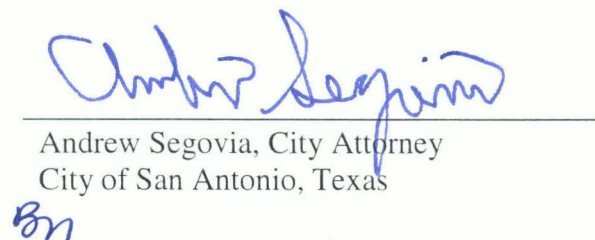 Andrew Segovia
Andrew Segovia, City Attorney
City of San Antonio, Texas